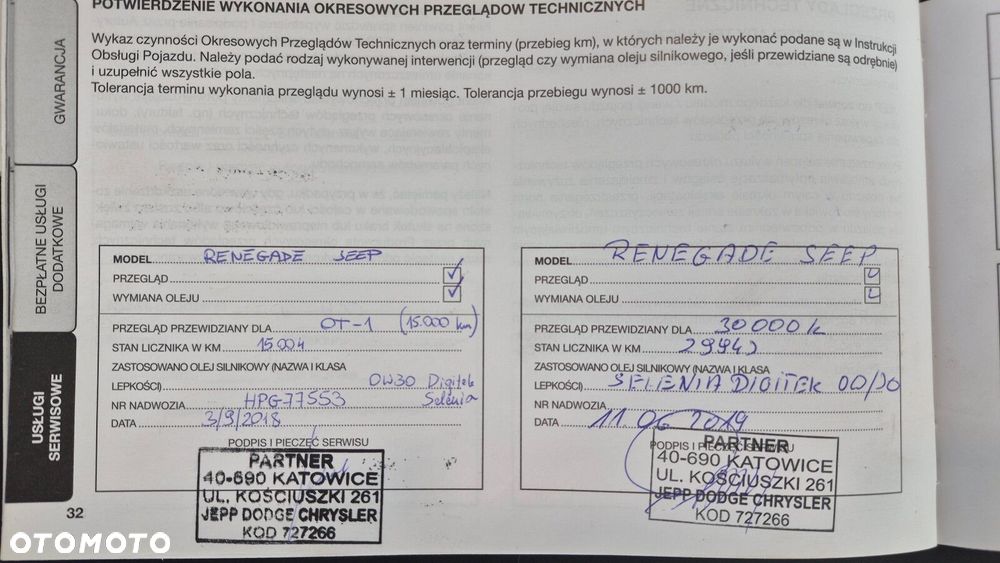 POTWIERDZENIE WYKONANIA OKRESOWYCH PRZEGLĄDÓW TECHNICZNYCH
Wykaz czynności Okresowych Przeglądów Technicznych oraz terminy (przebieg km), w których należy je wykonać podane są w Instrukcji
Obsługi Pojazdu. Należy podać rodzaj wykonywanej interwencji (przegląd czy wymiana oleju silnikowego, jeśli przewidziane są odrębnie)
i uzupełnić wszystkie pola.
Tolerancja terminu wykonania przeglądu wynosi ± 1 miesiąc. Tolerancja przebiegu wynosi ± 1000 km.
GWARANCJA
BEZPŁATNE USŁUGI
DODATKOWE
USŁUGI
SERWISOWE
MODEL RENEGADE SEEP
PRZEGLĄD
WYMIANA OLEJU
PRZEGLĄD PRZEWIDZIANY DLA OT-1 (15.000 km)
STAN LICZNIKA W KM 15.004
ZASTOSOWANO OLEJ SILNIKOWY (NAZWA I KLASA
LEPKOŚCI) 0W30 Digitek
Selenia
NR NADWOZIA HPG77553
DATA 3/9/2018
PODPIS I PIECZĘĆ SERWISU
PARTNER
40-690 KATOWICE
UL. KOŚCIUSZKI 261
JEPP DODGE CHRYSLER
KOD 727266
MODEL RENEGADE SEEP
PRZEGLĄD
WYMIANA OLEJU
PRZEGLĄD PRZEWIDZIANY DLA 30000k
STAN LICZNIKA W KM
ZASTOSOWANO OLEJ SILNIKOWY (NAZWA I KLASA
LEPKOŚCI) SELENIA DIGITEK
NR NADWOZIA
DATA 11.06 2019
PODPIS I PIECZĘĆ SERWISU
PARTNER
40-690 KATOWICE
UL. KOŚCIUSZKI 261
JEPP DODGE CHRYSLER
KOD 727266
32
OTOMOTO